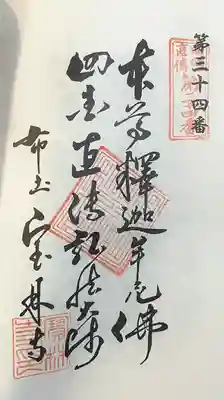 第三十四番
本尊釋迦牟尼佛
四国直伝弘法大師
布土 宝林寺